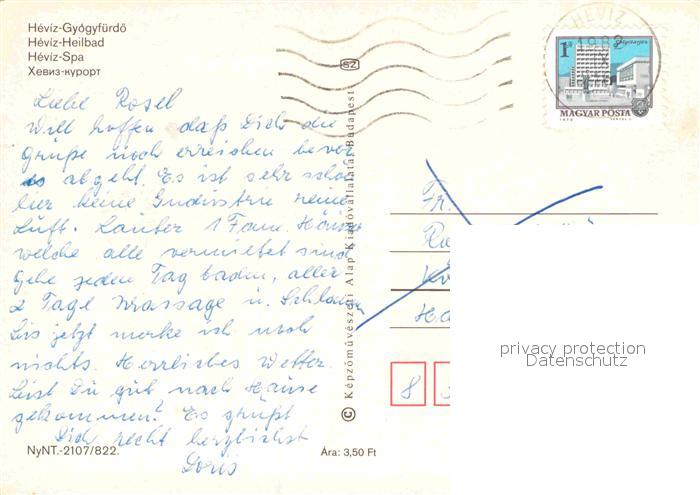 Hévíz-Gyógyfürdő
Hévíz-Heilbad
Hévíz-Spa
Хевиз-курорт
SZ
HÉVÍZ
1982
1 Ft
Salgótarján
MAGYAR POSTA
1973
Liebe Rosel
Will hoffen daß Dich die
Grüße noch erreichen bevor
es abgeht. Es ist sehr schön
hier keine Industrie reine
Luft. Lauter 1 Fam. Häuser
welche alle vermietet sind
Gehe jeden Tag baden, aller
2 Tage Massage u. Schlamm
Bis jetzt merke ich noch
nichts. Herrliches Wetter.
Bist Du gut nach Hause
gekommen? Es grüßt
Dich recht herzlichst
Doris
Fr.
8
© Képzőművészeti Alap Kiadóvállalata, Budapest
privacy protection
Datenschutz
NyNT.-2107/822.
Ára: 3,50 Ft